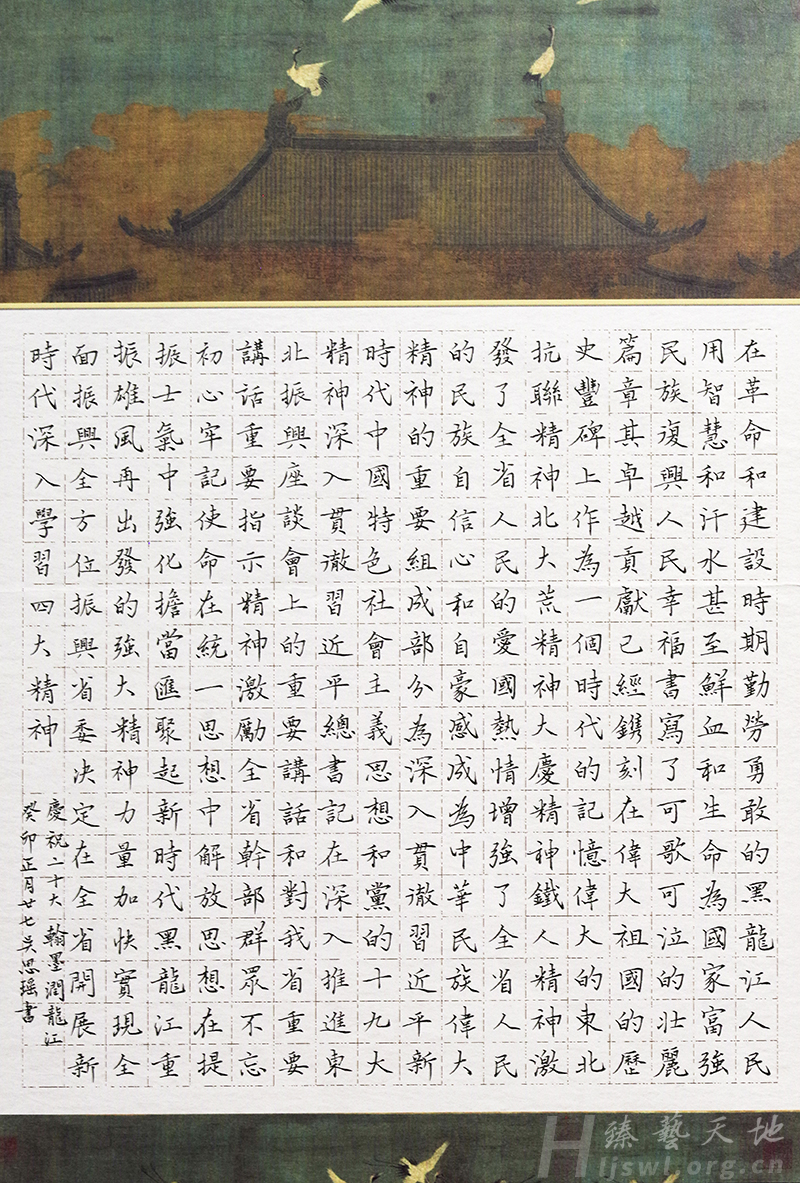 在革命和建設時期勤勞勇敢的黑龍江人民
用智慧和汗水甚至鮮血和生命為國家富強
民族復興人民幸福書寫了可歌可泣的壯麗
篇章其卓越貢獻已經鐫刻在偉大祖國的歷
史豐碑上作為一個時代的記憶偉大的東北
抗聯精神北大荒精神大慶精神鐵人精神激
發了全省人民的愛國熱情增強了全省人民
的民族自信心和自豪感成為中華民族偉大
精神的重要組成部分為深入貫徹習近平新
時代中國特色社會主義思想和黨的十九大
精神深入貫徹習近平總書記在深入推進東
北振興座談會上的重要講話和對我省重要
講話重要指示精神激勵全省幹部群眾不忘
初心牢記使命在統一思想中解放思想在提
振士氣中強化擔當匯聚起新時代黑龍江重
振雄風再出發的強大精神力量加快實現全
面振興全方位振興省委決定在全省開展新
時代深入學習四大精神
慶祝二十大 翰墨潤龍江
癸卯正月廿七吴思瑶書
臻藝天地
Hljswl.org.cn